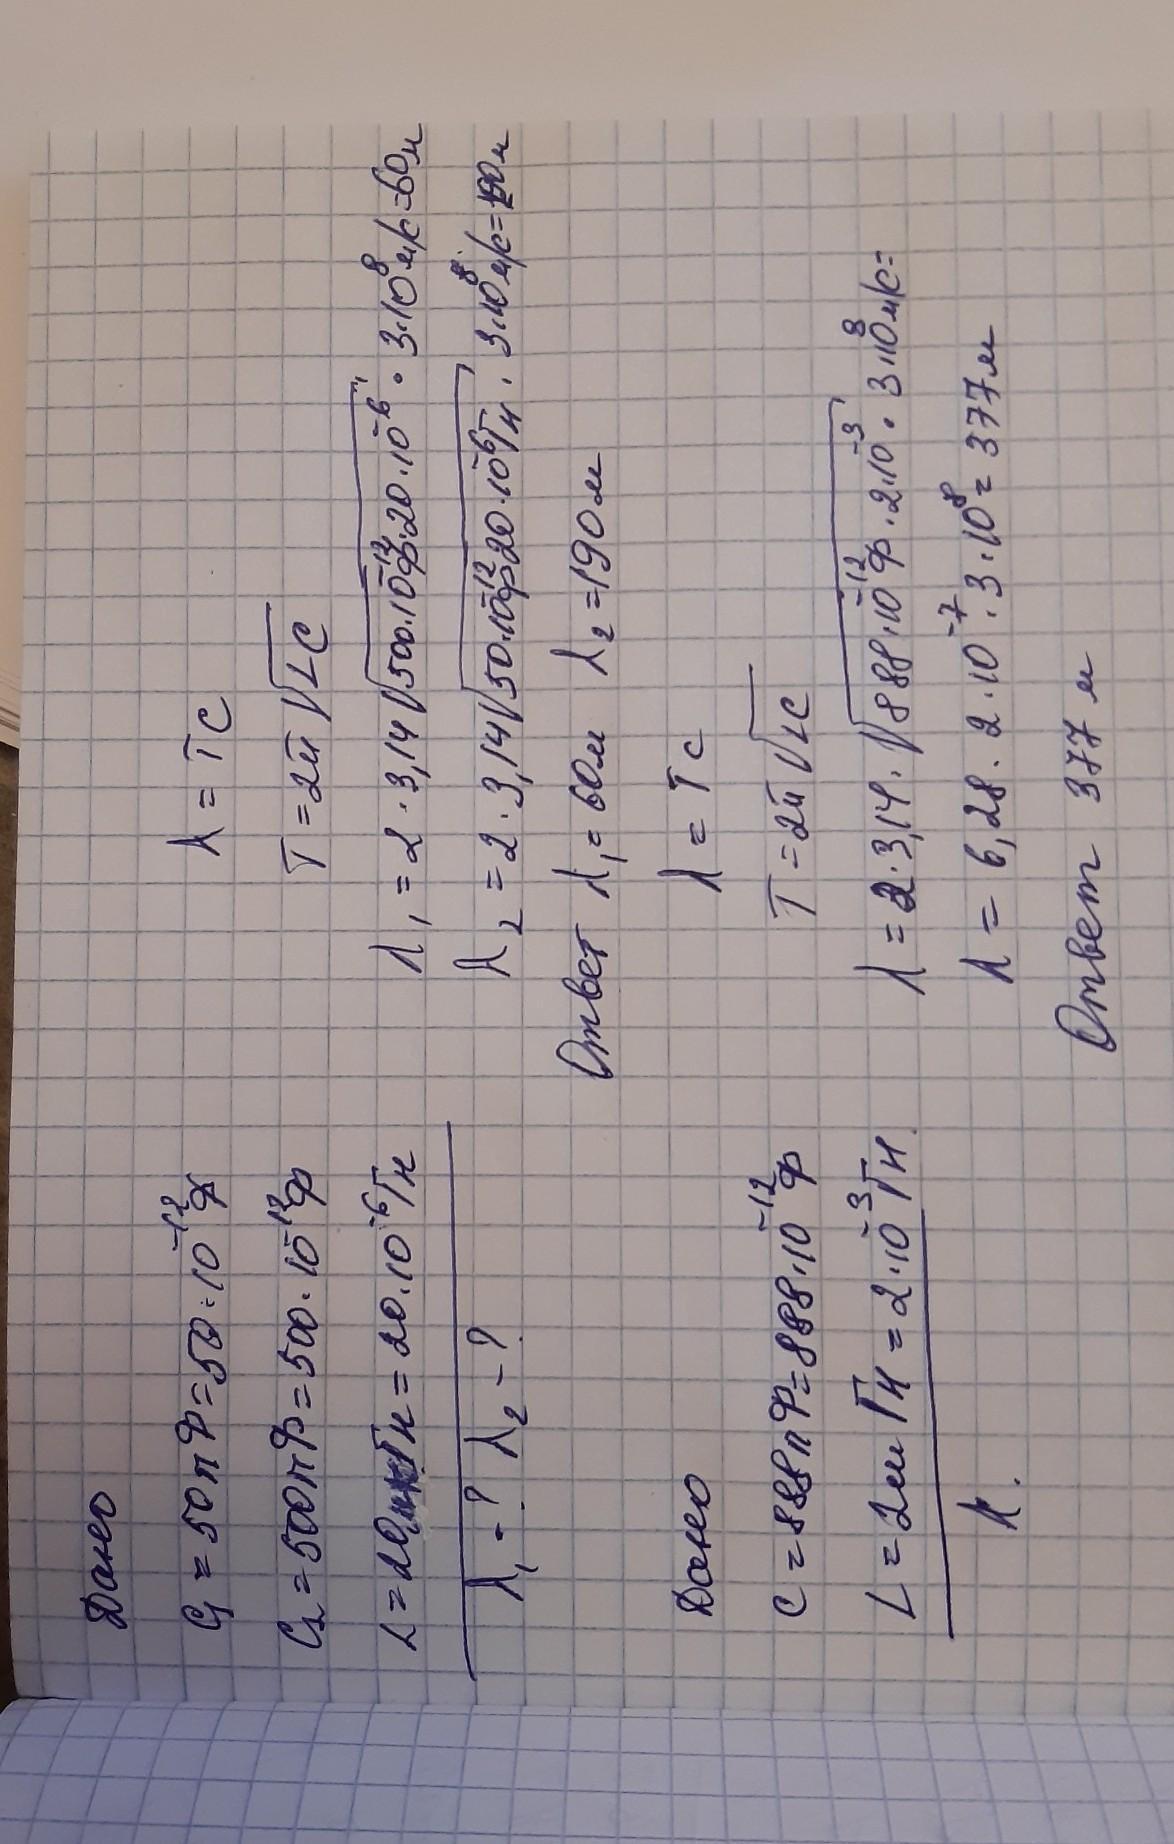 Дано
C₁ = 50 пФ = 50·10⁻¹²Ф
C₂ = 500 пФ = 500·10⁻¹²Ф
L = 20 мкГн = 20·10⁻⁶Гн
λ₁ - ? λ₂ - ?
λ = Tc
T = 2π√LC
λ₁ = 2·3,14√500·10⁻¹²Ф·20·10⁻⁶ · 3·10⁸ м/с = 60м
λ₂ = 2·3,14√50·10⁻¹²Ф20·10⁻⁶Гн · 3·10⁸ м/с = 190м
Ответ λ₁ = 60м λ₂ = 190м
Дано
C = 888 пФ = 888·10⁻¹²Ф
L = 2мГн = 2·10⁻³Гн
λ.
λ = Tc
T = 2π√LC
λ = 2·3,14·√888·10⁻¹²Ф·2·10⁻³ · 3·10⁸ м/с =
λ = 6,28·2·10⁻⁷·3·10⁸ = 377м
Ответ 377 м